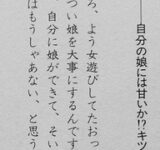 ――自分の娘には甘いか!?キツ
ろ、よう女遊びしてたおっ
つい娘を大事にするんです
自分に娘ができて、そい
はもうしゃあない、と思う